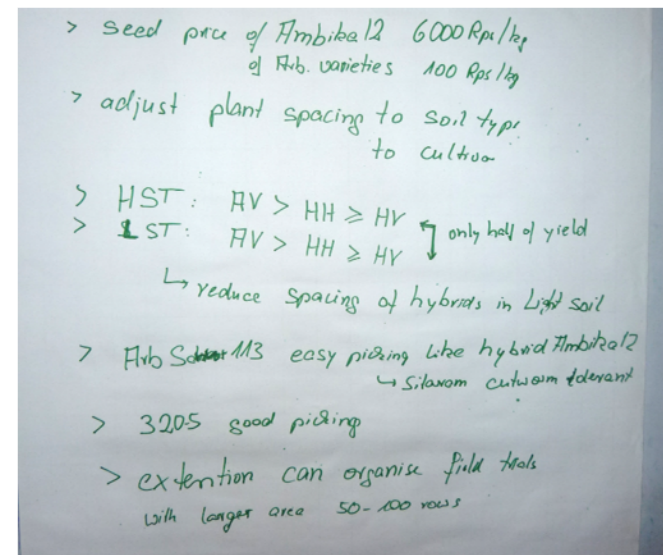 > Seed price of Ambika12 6000 Rps/kg
of Arb. varieties 100 Rps/kg
> adjust plant spacing to soil type
to cultivar
> HST: AV > HH ≥ HV
> LST: AV > HH ≥ HV
only half of yield
↳ reduce spacing of hybrids in Light soil
> Arb 113 easy picking like hybrid Ambika12
↳ cutworm tolerant
> 3205 good picking
> extention can organise field trials
with larger area 50-100 rows